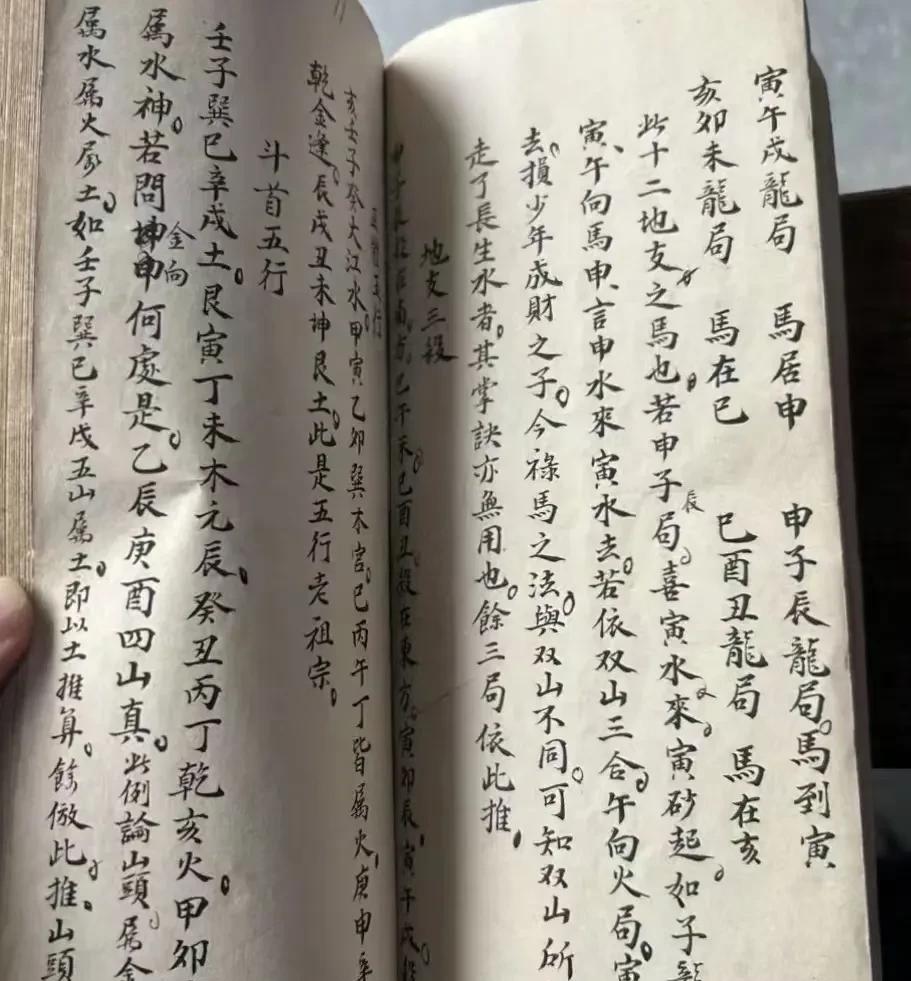 寅午戌龍局 馬居申 申子辰龍局。馬到寅
亥卯未龍局 馬在巳 巳酉丑龍局 馬在亥
此十二地支之馬也。若申子辰局。喜寅水來。寅砂起。如子龍
寅、午向馬申、言申水來寅水去。若依双山三合。午向火局。寅
去。損少年成財之子。今祿馬之法與双山不同。可知双山所
走了長生水者。其掌訣亦無用也。餘三局依此推。
地支三殺
殺在南方。巳午未。巳酉丑。殺在東方。寅卯辰。寅午戌。
五行
亥壬子癸大江水。甲寅乙卯巽木宮。巳丙午丁皆属火。庚申辛
乾金逢。辰戌丑未坤艮土。此是五行老祖宗。
斗首五行
壬子巽巳辛戌土。艮寅丁未木元辰。癸丑丙丁乾亥火。甲卯
属水神。若問坤申金向何處是。乙辰庚酉四山真。此例論山頭。属金
属水属火属土。如壬子巽巳辛戌五山属土。即以土推算。餘倣此推。山頭